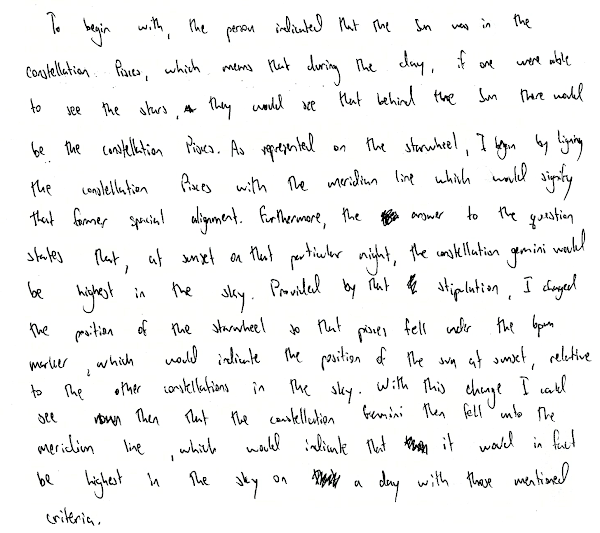 To begin with, the person indicated that the Sun was in the
constellation Pisces, which means that during the day, if one were able
to see the stars, they would see that behind the Sun there would
be the constellation Pisces. As represented on the starwheel, I began by lining
the constellation Pisces with the meridian line which would signify
that former spacial alignment. Furthermore, the answer to the question
states that, at sunset on that particular night, the constellation gemini would
be highest in the sky. Provided by that stipulation, I changed
the position of the starwheel so that pisces fell under the 6pm
marker, which would indicate the position of the sun at sunset, relative
to the other constellations in the sky. With this change I could
see then that the constellation Gemini then fell into the
meridian line, which would indicate that it would in fact
be highest in the sky on a day with those mentioned
criteria.